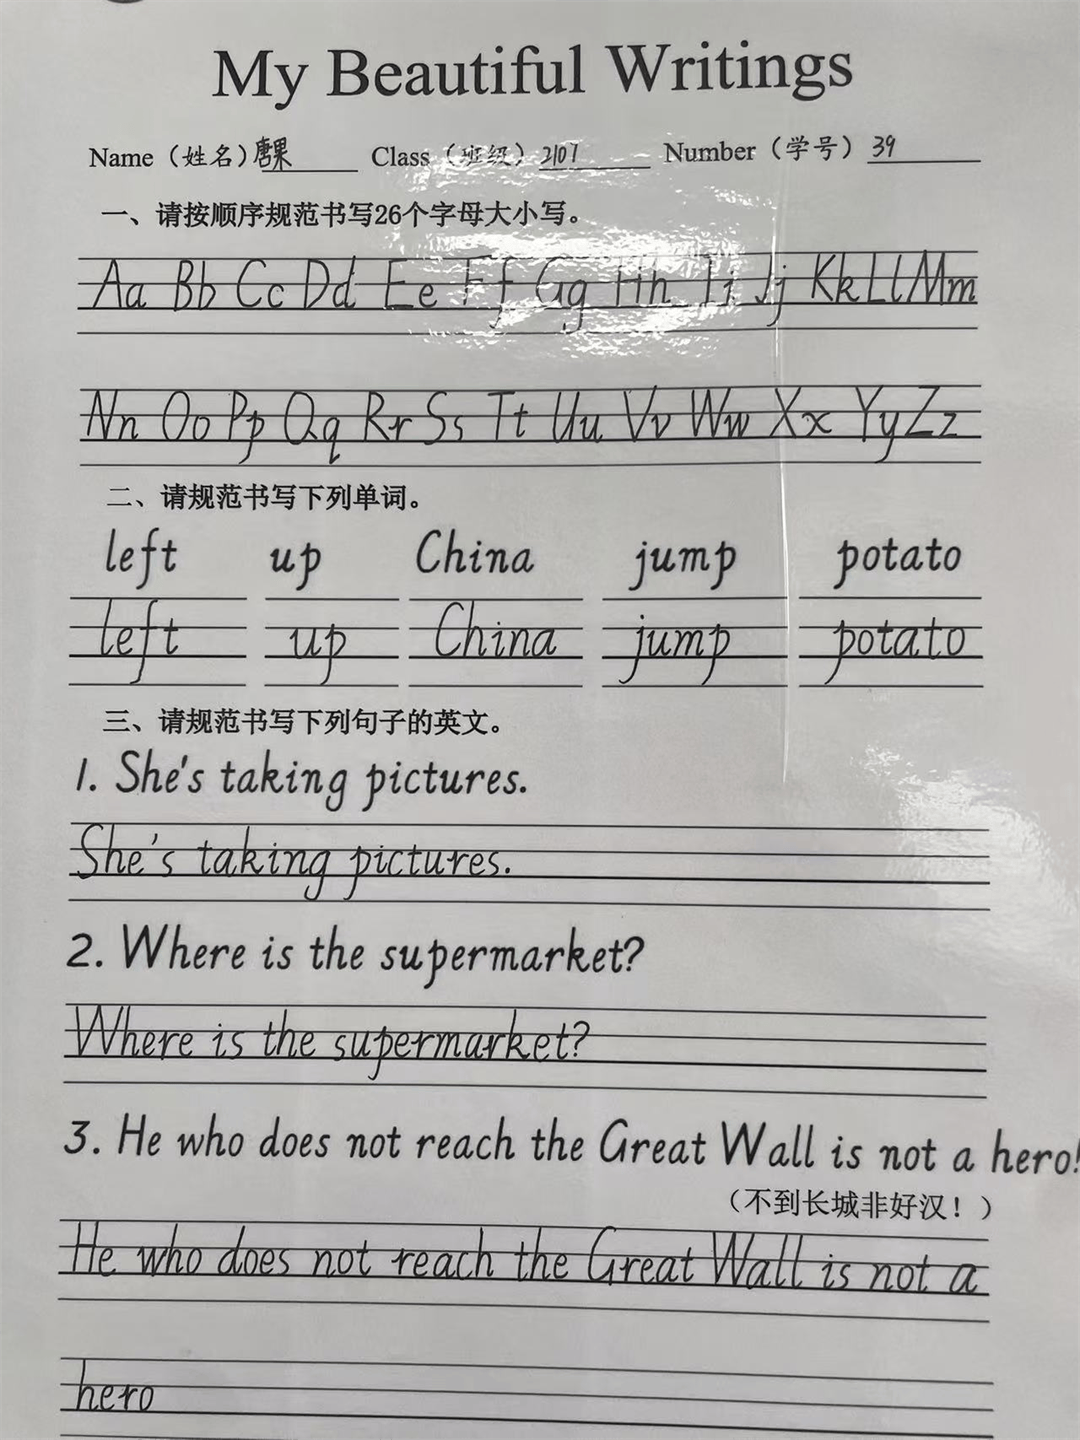 My Beautiful Writings
Name（姓名）唐果 Class（班级）2107 Number（学号）39
一、请按顺序规范书写26个字母大小写。
Aa Bb Cc Dd Ee Ff Gg Hh Ii Jj Kk Ll Mm
Nn Oo Pp Qq Rr Ss Tt Uu Vv Ww Xx Yy Zz
二、请规范书写下列单词。
left up China jump potato
left up China jump potato
三、请规范书写下列句子的英文。
1. She's taking pictures.
She's taking pictures.
2. Where is the supermarket?
Where is the supermarket?
3. He who does not reach the Great Wall is not a hero!
（不到长城非好汉！）
He who does not reach the Great Wall is not a
hero